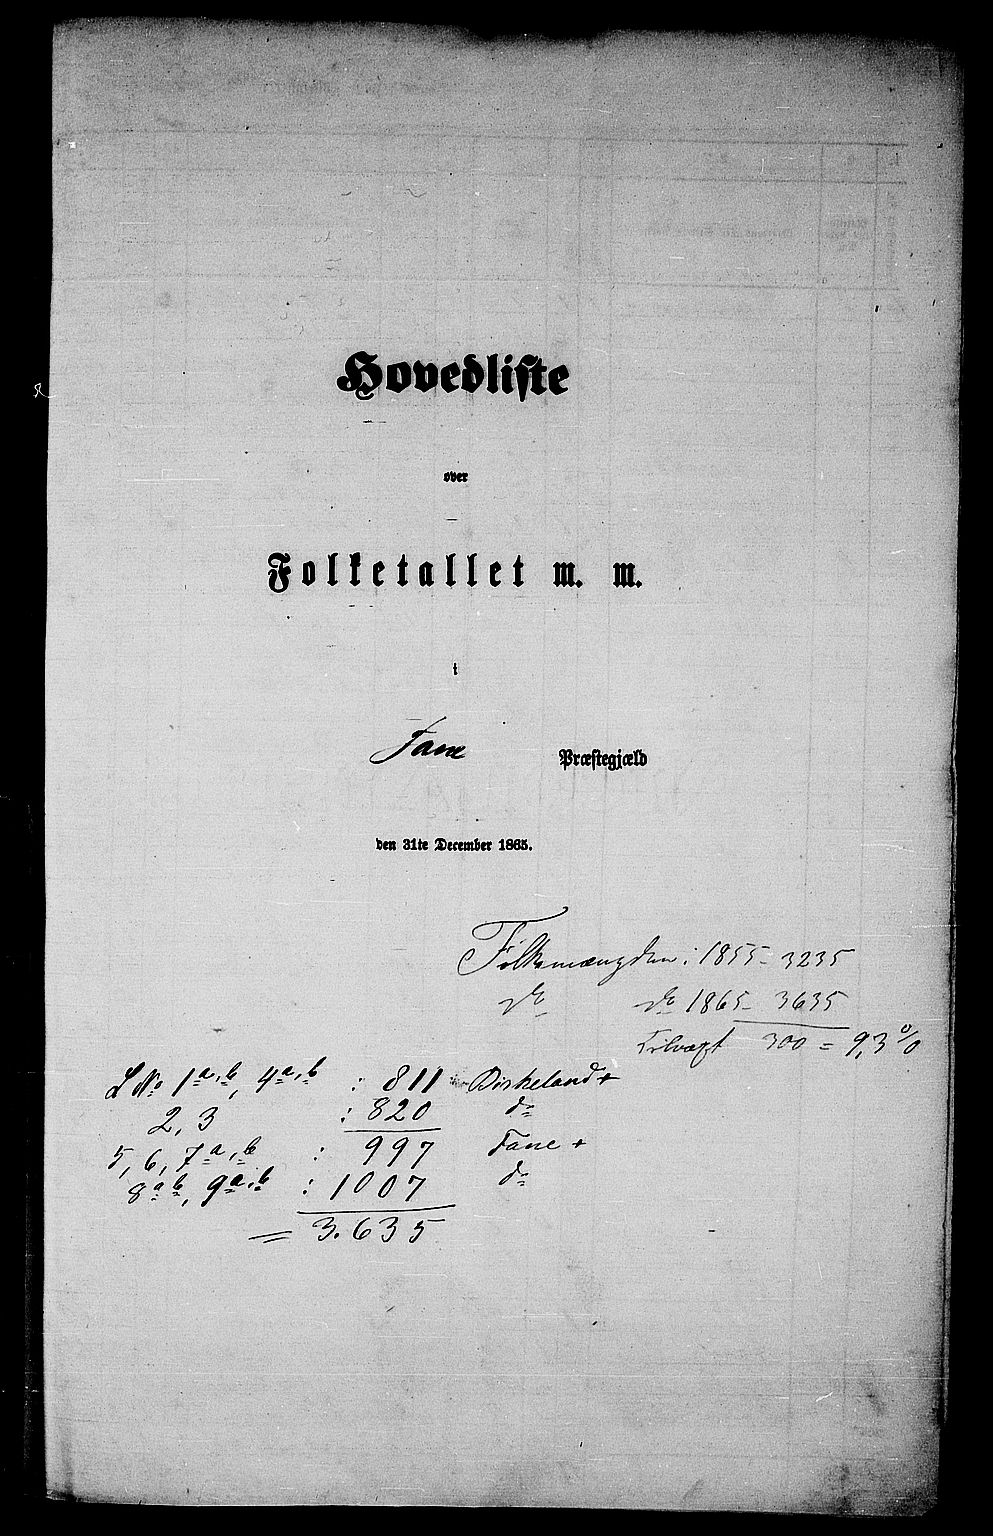 Hovedliste
over
Folketallet m. m.
i
Fane Præstegjæld
den 31te December 1865.
Folkemængden: 1855 - 3235
do do 1865 - 3635
Tilvæxt 300 = 9,3 %
L No 1 a, b, 4 a, b : 811 Birkeland +
2, 3 : 820 do
5, 6, 7 a, b : 997 Fane +
8 a b, 9 a, b : 1007 do
= 3.635